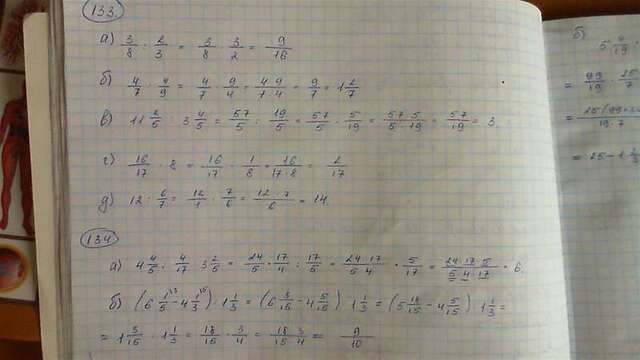 133.
а) 3/8 : 2/3 = 3/8 · 3/2 = 9/16
б) 4/7 : 4/9 = 4/7 · 9/4 = 4·9/7·4 = 9/7 = 1 2/7
в) 11 2/5 : 3 4/5 = 57/5 : 19/5 = 57/5 · 5/19 = 57·5/5·19 = 57/19 = 3
г) 16/17 : 8 = 16/17 · 1/8 = 16/17·8 = 2/17
д) 12 : 6/7 = 12/1 · 7/6 = 12·7/6 = 14
134
а) 4 4/5 : 4/17 : 3 2/5 = 24/5 · 17/4 : 17/5 = 24·17/5·4 · 5/17 = 24·17·5/5·4·17 = 6
б) (6 1/5 - 4 1/3) : 1 1/3 = (6 3/15 - 4 5/15) : 1 1/3 = (5 18/15 - 4 5/15) : 1 1/3 =
= 1 3/15 : 1 1/3 = 18/15 · 3/4 = 18·3/15·4 = 9/10
б)
5 4/19
= 99/19 · 25/7